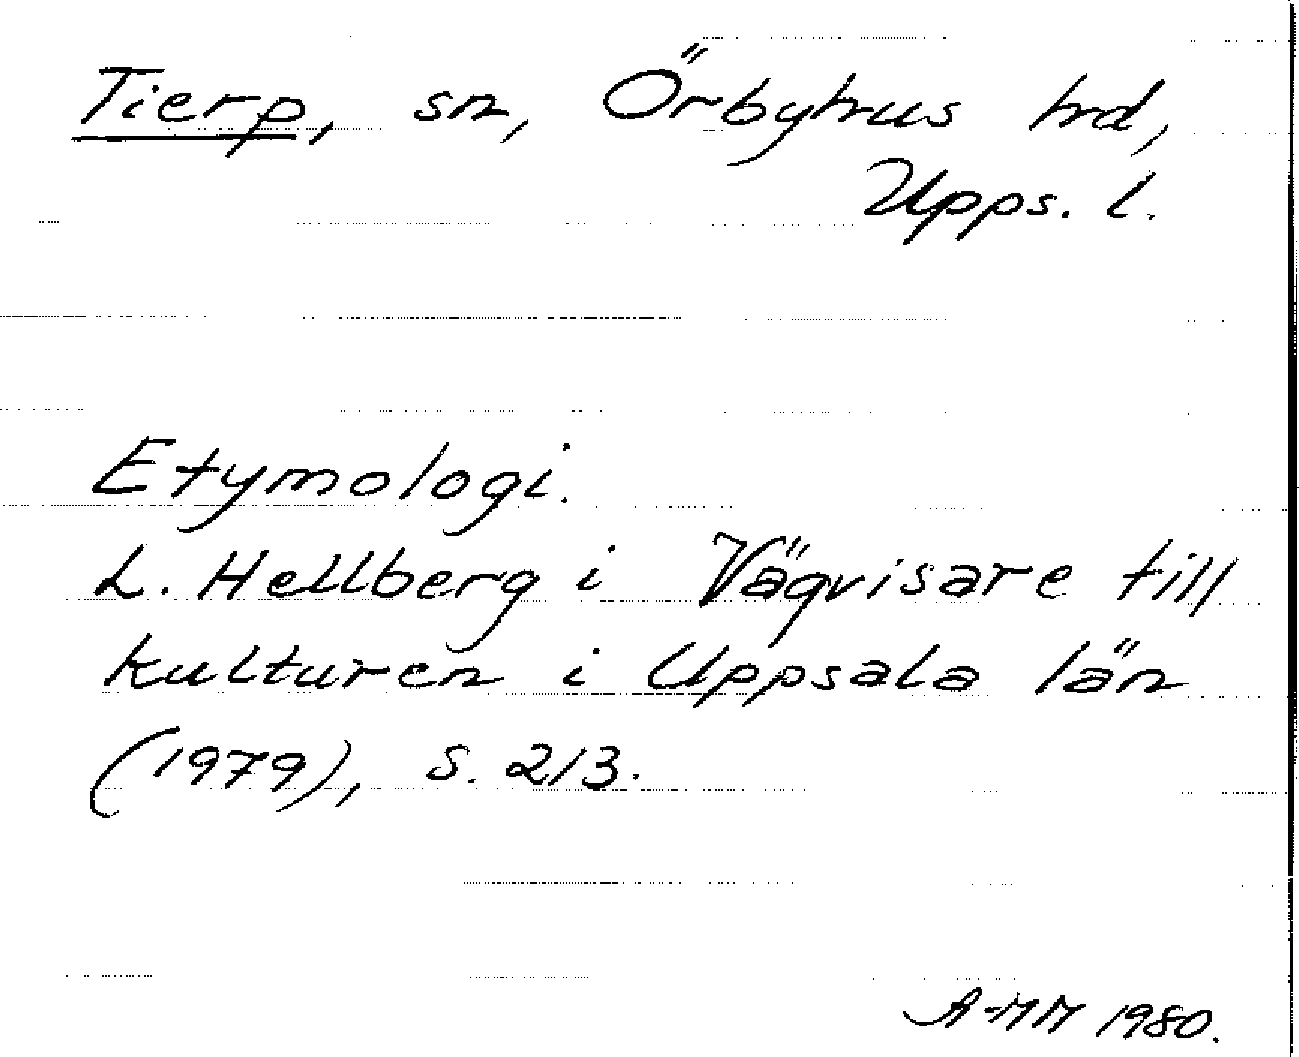 Tierp, sn, Örbyhus hd,
Upps. l.
Etymologi.
L. Hellberg i Vägvisare till
kulturen i Uppsala län
(1979), s. 213.
A-MM 1980.